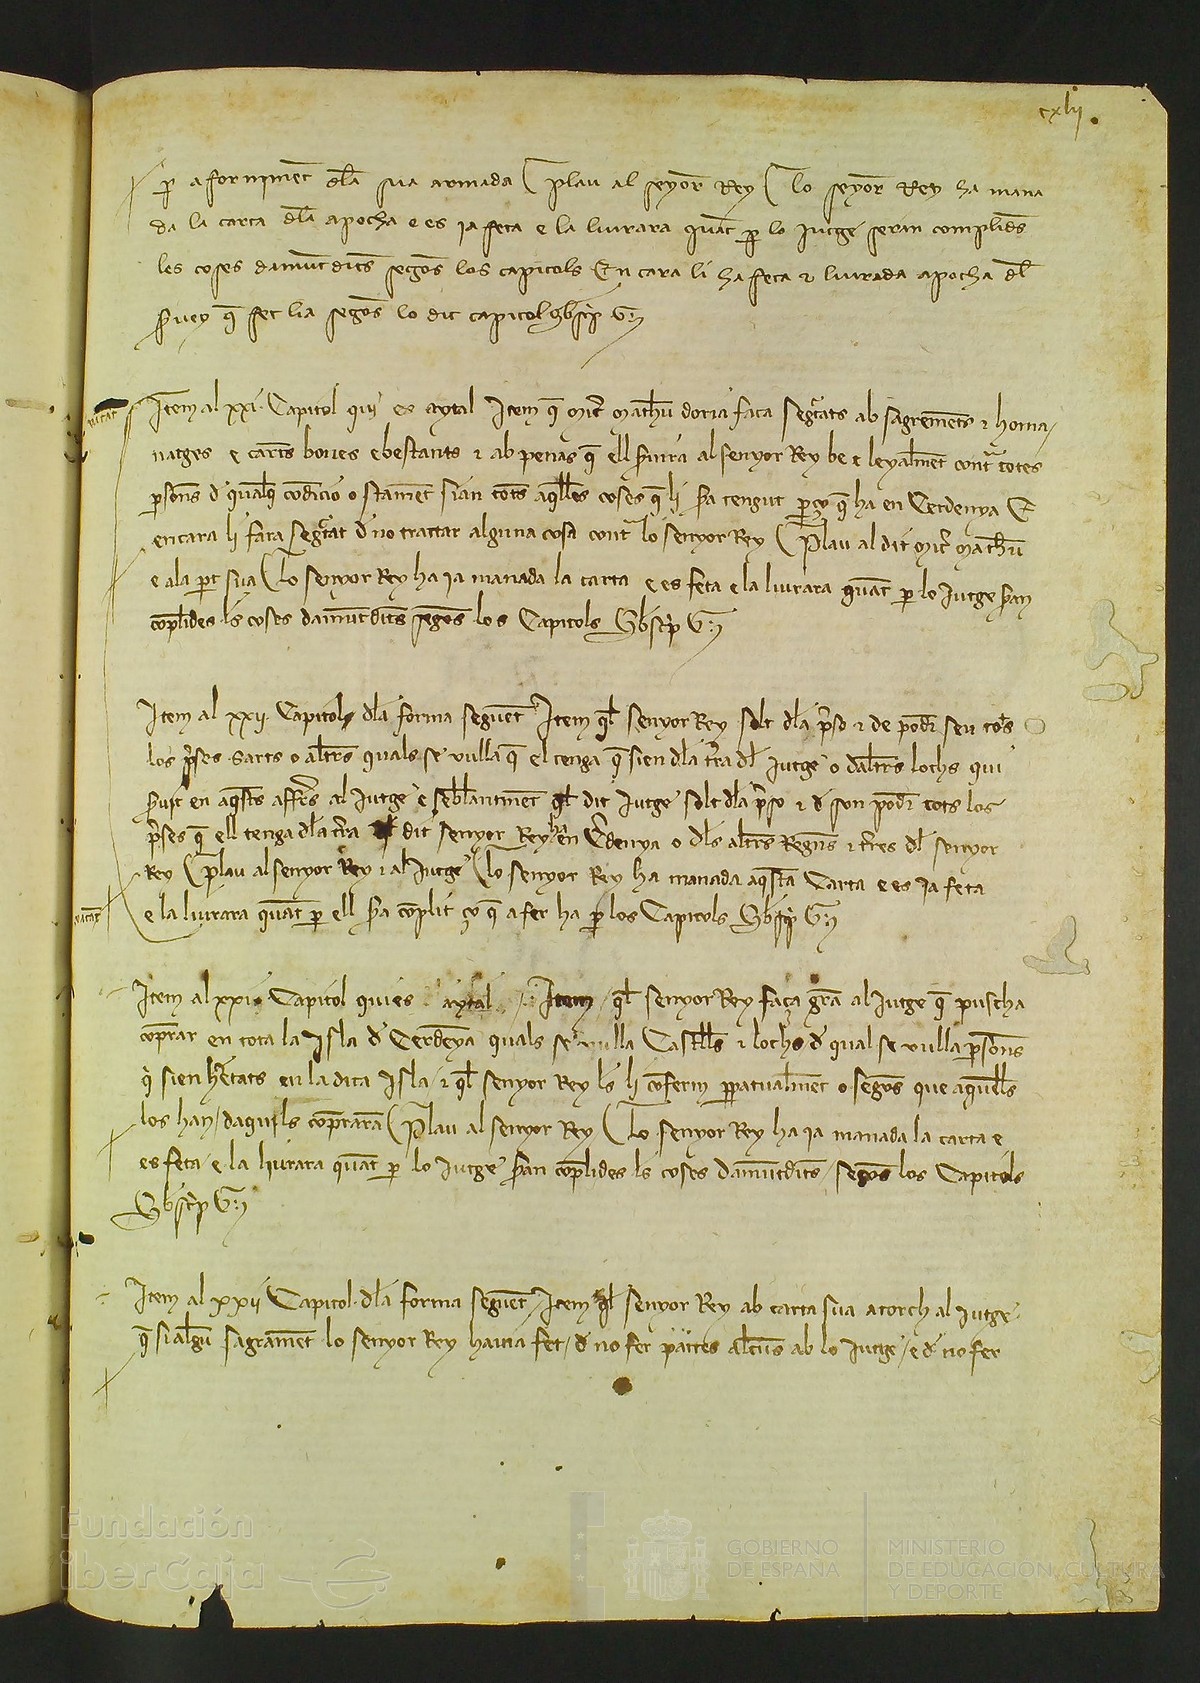 cxlij.
p aforniment dla sua armada ( plau al seyor Rey ( lo seyor Rey ha mana
da la carta dla apocha e es ia feta e la liurara quat p lo iutge seran complides
les coses damut dites segos los capitols En cara li ha feta e liurada apocha dl
seruey q fet lia segos lo dit capitol
Item al xxi. Capitol qui es aytal Item q Mathu doria faca segrtats ab sagramets e homa/
natges e cartes bones e bestants e ab penas q ell seruira al senyor Rey be e leyalmet contra totes
psones d qualq condicio o stamet sian totes aqlles coses q li sia tengut pço q ha en Cerdenya E
encara li fara segrtat d no tractar alguna cosa contra lo senyor Rey ( Plau al dit Mathu
e ala pt sua ( lo senyor Rey ha ia manada la carta e es feta e la liurara quat p lo iutge seran
coplides les coses damutdites segos los Capitols
Item al xxii. Capitol dla forma seguet Item ql senyor Rey solt dla pso e de poder seu tots
los pses sarts o altres quals se vulla q el tenga q sien dla trra dl Iutge o daltres lochs qui
en aqsts affers al Iutge e seblantmet ql dit Iutge solt dla pso e d son poder tots los
pses q ell tenga dla trra dl dit senyor Rey en Cerdenya o dls altres Regnes e trres dl senyor
Rey ( Plau al senyor Rey e al Iutge ( lo senyor Rey ha manada aqsta Carta e es ia feta
e la liurara quat p ell sia coplit ço q a fer ha p los Capitols
Item al xxi Capitol qui es aytal . Item / ql senyor Rey faça gra al Iutge q puscha
coprar en tota la Isla d Cerdenya quals se vulla Castells e lochs d qual se vulla psones
q sien heretats en la dita Isla / e ql senyor Rey les li coferm ppatualmet o segos que aquells
los han / daquels coprara ( Plau al senyor Rey ( Lo senyor Rey ha ia manada la carta e
es feta e la liurara quat p lo iutge seran coplides les coses damutdites / segos los Capitols
Item al xxii Capitol dla forma seguet / Item ql senyor Rey ab carta sua atorch al iutge
q si algu sagramet lo senyor Rey hauia fet / d no fer pactes alcuns ab lo iutge / e d no fer
Fundación
iberCaja
GOBIERNO
DE ESPAÑA
MINISTERIO
DE EDUCACIÓN, CULTURA
Y DEPORTE